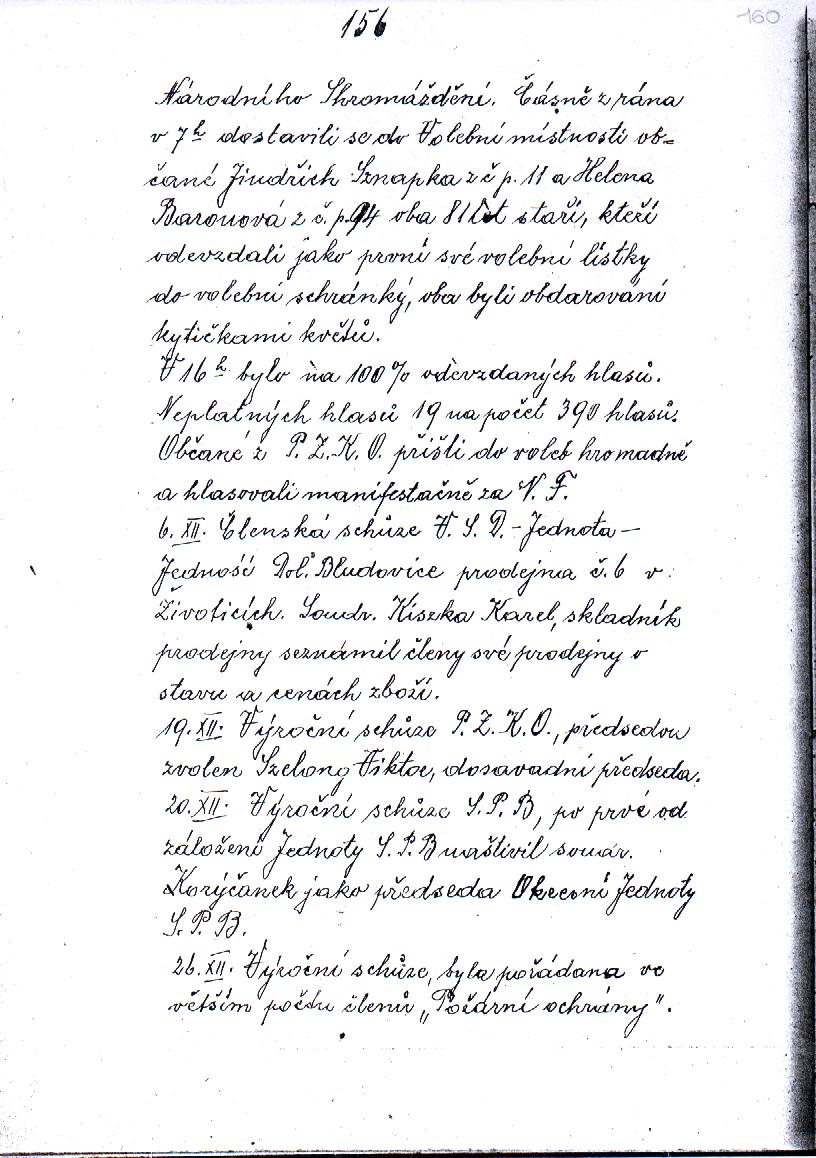 156
160
Národního Shromáždění. Časně z rána
v 7h dostavili se do Volební místnosti ob-
čané Jindřich Sznapka z č p. 11 a Helena
Baronová z č. p. 94 oba 81 let staří, kteří
odevzdali jako první své volební lístky
do volební schránky, oba byli obdarováni
kytičkami květů.
V 16h bylo na 100% odevzdaných hlasů.
Neplatných hlasů 19 na počet 390 hlasů.
Občané z P. Z. K. O. přišli do voleb hromadně
a hlasovali manifestačně za N. F.
6. XII. Členská schůze V. S. D. - Jednota -
Jedność Dol. Bludovice prodejna č. 6 v
Životicích. Soudr. Kiszka Karel, skladník
prodejny seznámil členy své prodejny o
stavu a cenách zboží.
19. XII. Výroční schůze P. Z. K. O., předsedou
zvolen Szelong Viktor, dosavadní předseda.
20. XII. Výroční schůze S. P. B, po prvé od
založení Jednoty S. P. B navštívil soudr.
Koryčanek jako předseda Okresní Jednoty
S. P. B.
26. XII. Výroční schůze, byla pořádána ve
větším počtu členů „Požární ochrány".